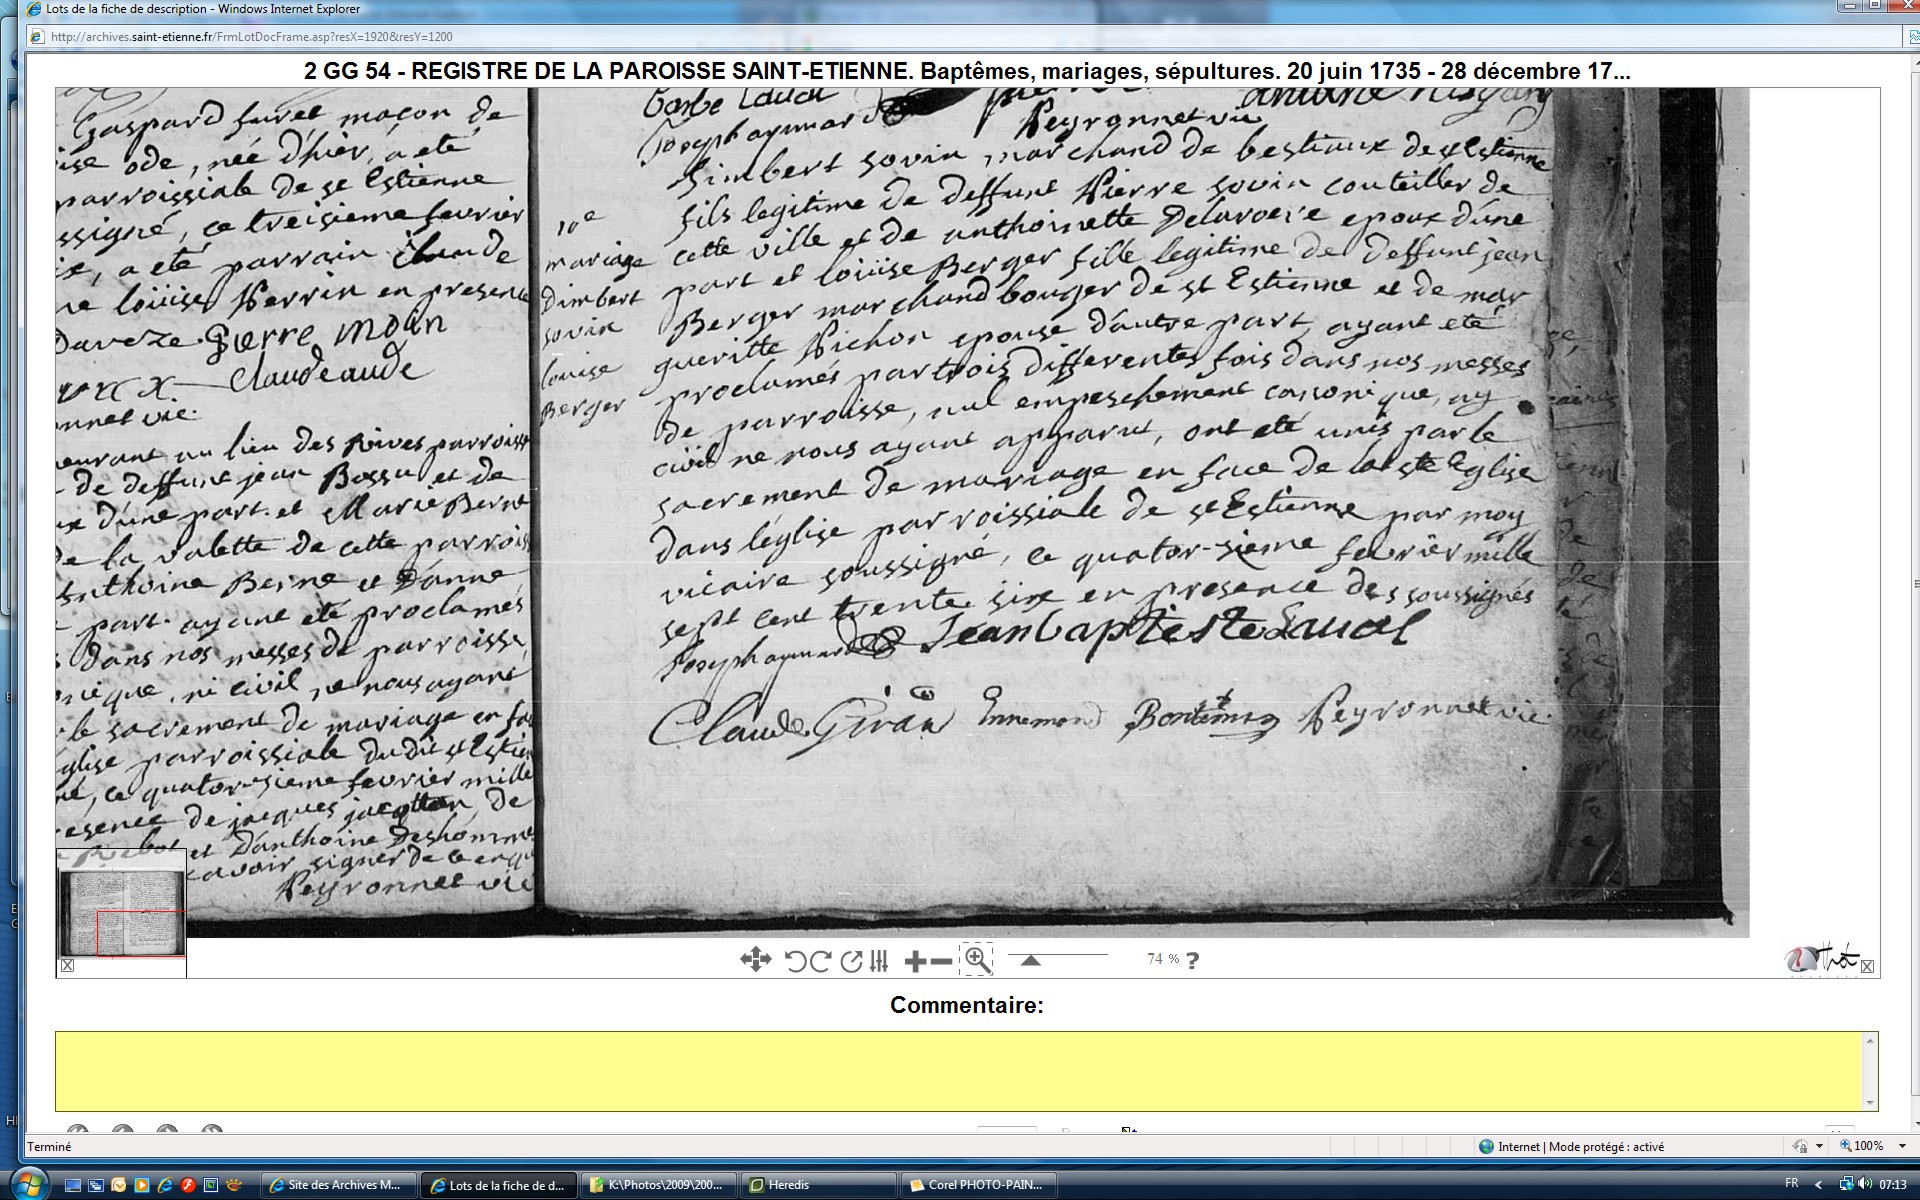 Lots de la fiche de description - Windows Internet Explorer
http://archives.saint-etienne.fr/FrmLotDocFrame.asp?resX=1920&resY=1200
2 GG 54 - REGISTRE DE LA PAROISSE SAINT-ETIENNE. Baptêmes, mariages, sépultures. 20 juin 1735 - 28 décembre 17...
Gaspard furet maçon de
ise ode, née d'hier, a eté
parroissiale de st Estienne
ssigné, ce treisieme fevrier
, a eté parrain Claude
ne loüise Perrin en presence
Daveze Pierre moin
Claudeaude
onnet vic.
eurant au lieu des Rives parroiss
de deffunt jean Bossu et de
x d'une part. et Marie Berne
de la valette de cette parrois
Anthoine Berne et d'anne
part. ayant eté proclamés
s dans nos messes de parroisse,
nique, ni civil, ne nous ayant
le sacrement de mariage en fa
glise parroissiale dudit st Estien
né, ce quator-sieme fevrier mille
résence de jacques de
et d'anthoine Deshomme
avoir signer de ce enqu
Peyronnet vic
10e
mariage
Dimbert
sovin
louise
Berger
Barbe Laval
Joseph aymard
Peyronnet vic
himbert sovin marchand de bestiaux de st Estienne
fils legitime de deffunt Pierre sovin couteiller de
cette ville et de anthoinette Delaroere epoux d'une
part et loüise Berger fille legitime de deffunt jean
Berger marchand bouger de st Estienne et de mar
gueritte Pichon epouse d'autre part, ayant eté
proclamés par trois differentes fois dans nos messes
de parroisse, nul empeschement canonique, ny
civil ne nous ayant apparut, ont eté unis par le
sacrement de mariage en face de la ste Eglise
dans léglise parroissiale de st Estienne par moy
vicaire soussigné, ce quator-sieme fevrier mille
sept cent trente six en presence des soussignés
Joseph aymard Jean baptiste Laval
Claude Giran Ennemond Bontemps Peyronnet vic.
74 %
?
Commentaire:
Terminé
Internet | Mode protégé : activé
100%
Site des Archives M...
Lots de la fiche de d...
K:\Photos\2009\200...
Heredis
Corel PHOTO-PAIN...
FR
07:13